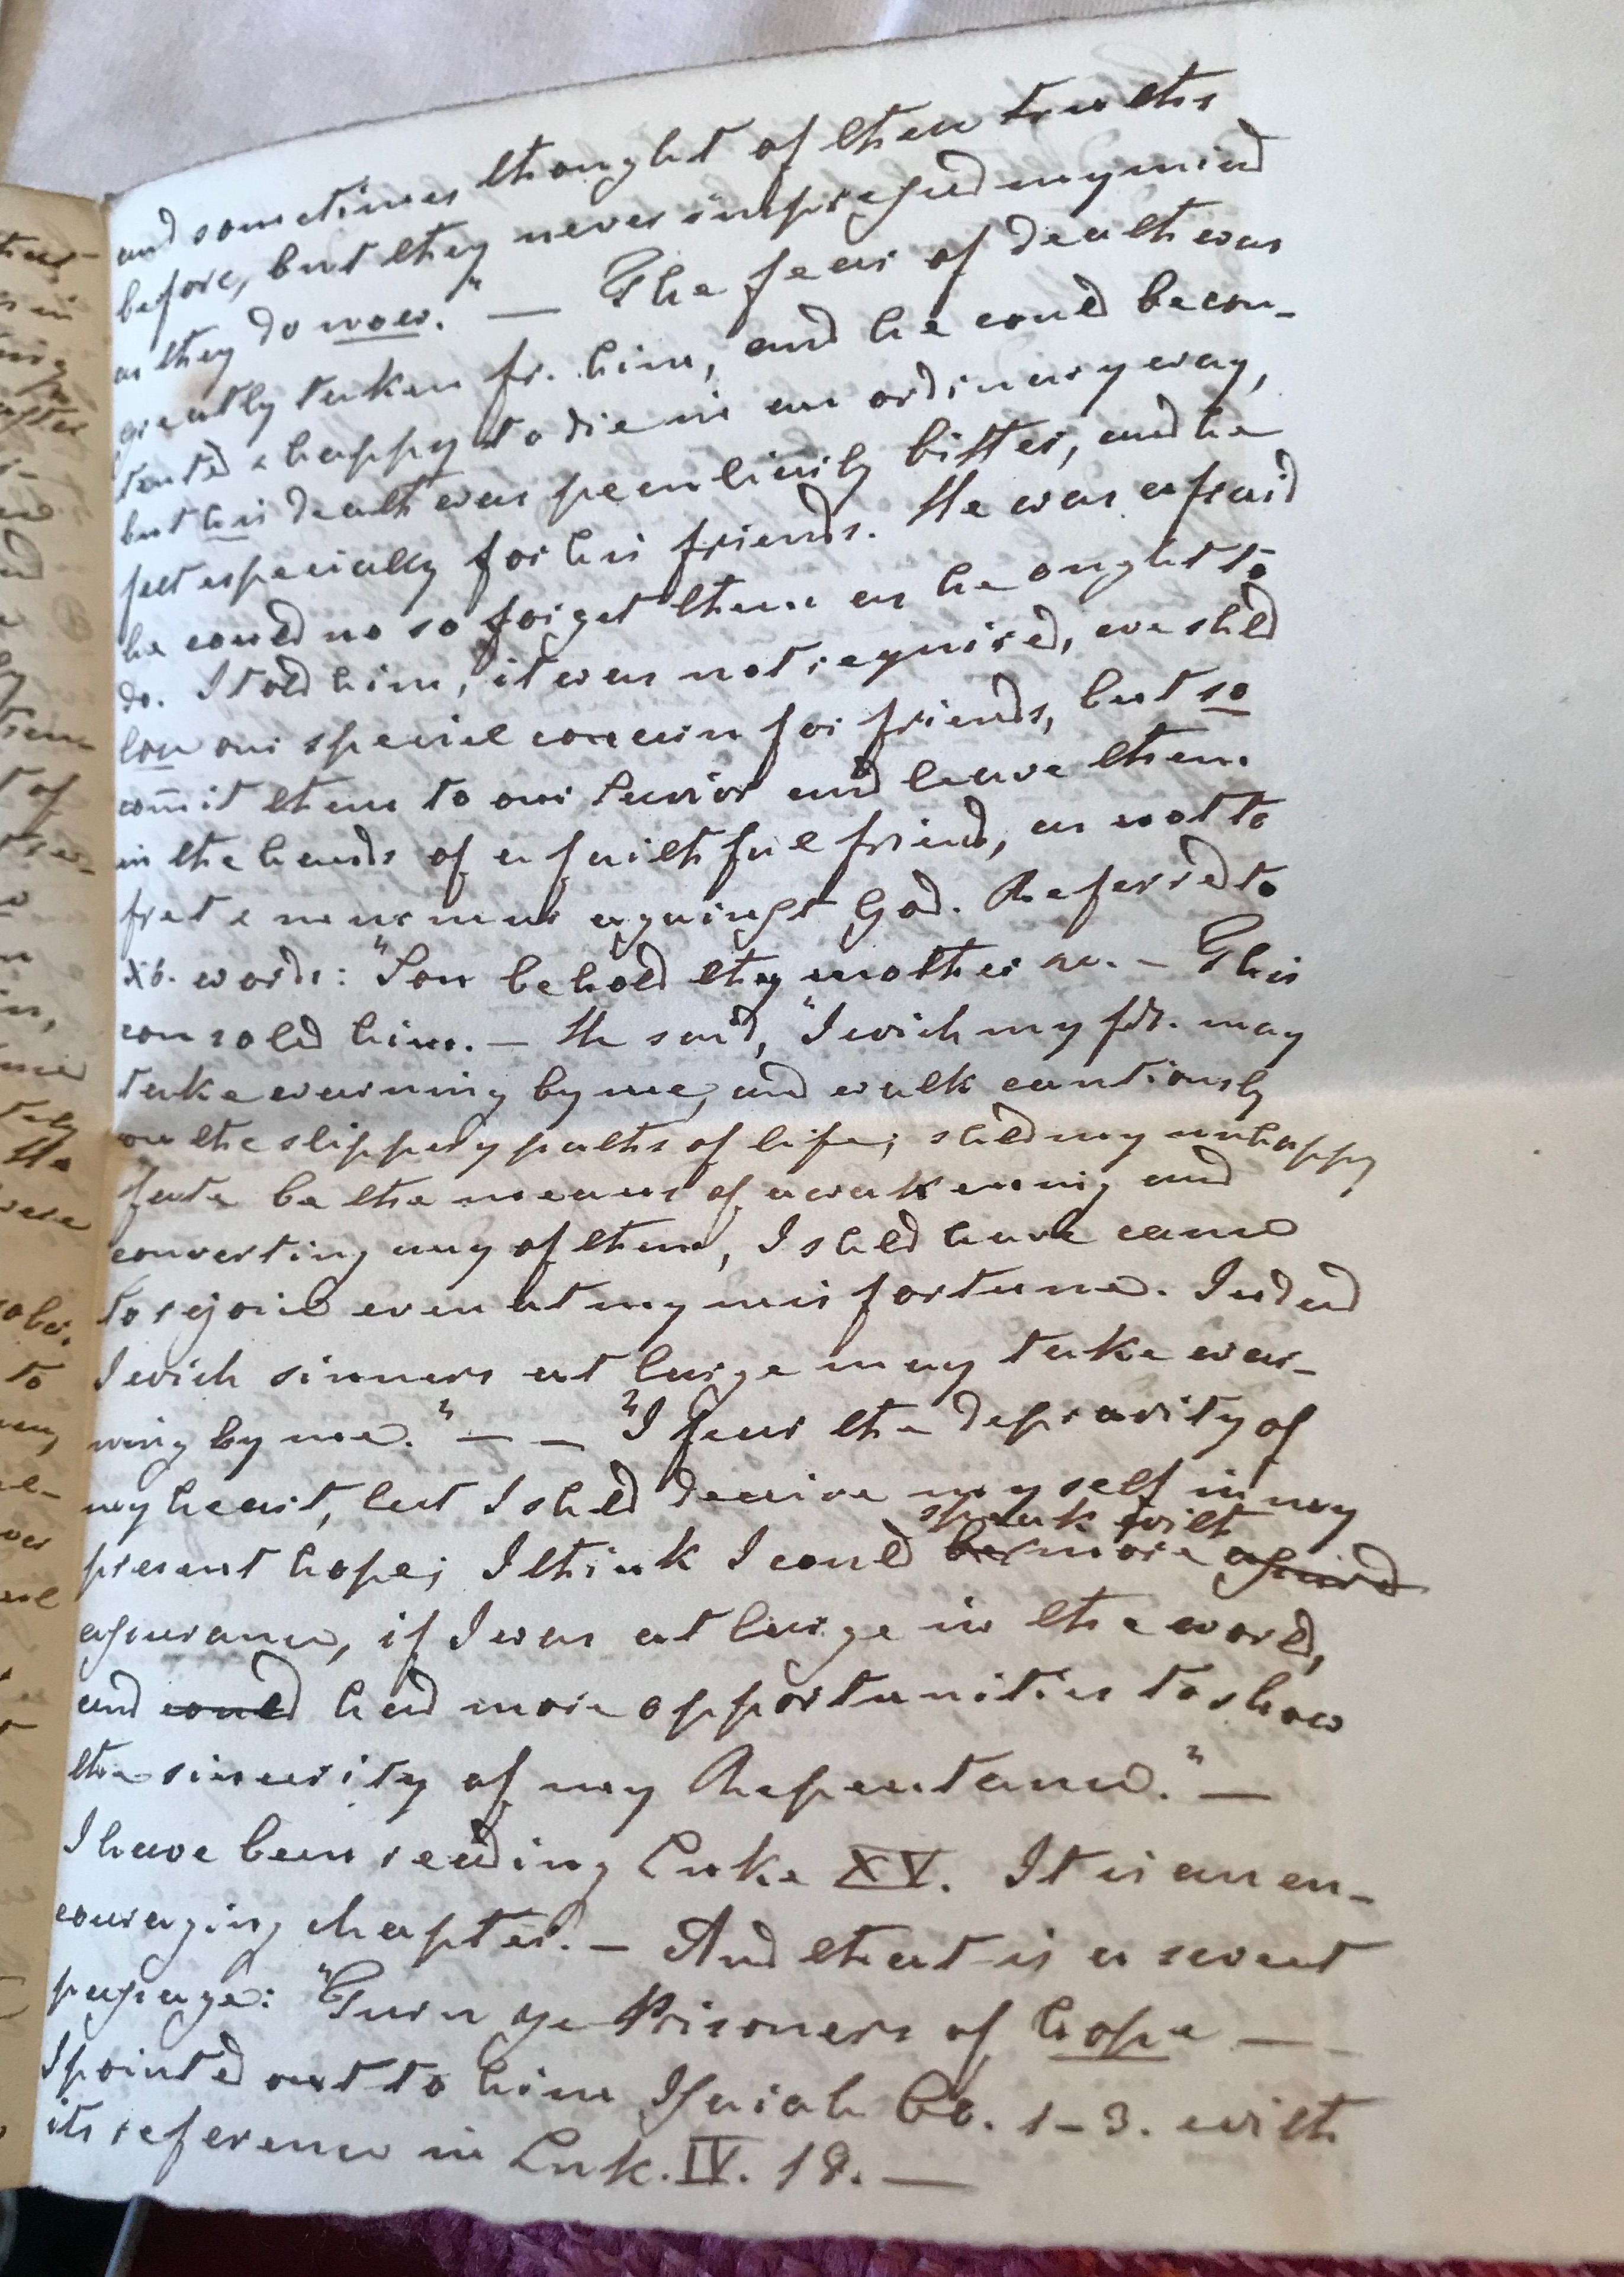 and sometimes thought of them truths
before, but they never impressed my mind
as they do now." — The fear of death was
greatly taken fr. him, and he could be con-
tented & happy to die in an ordinary way,
but his death was peculiarly bitter, and he
felt especially for his friends. He was afraid
he could no so forget them as he ought to
do. I told him, it was not required, we shld
low our special concern for friends, but so
com̄it them to our Savior and leave them
in the hands of a faithful friend, as not to
fret & murmur against God. Referred to
Xs. words: "Son behold thy mother &c. — This
consoled him. — He said, "I wish my fds. may
take warning by me, and walk cautiously
on the slippery paths of life; shld my unhappy
fate be the means of awakening and
converting any of them, I shld have cause
to rejoice even at my misfortune. Indeed
I wish sinners at large may take war-
ning by me." — — "I fear the depravity of
my heart, lest I shld deceive myself in my
speak with
present hope; I think I could be more assured
assurance, if I was at large in the world,
and could had more opportunities to show
the sincerity of my Repentance." —
I have been reading Luke XV. It is an en-
couraging chapter. — And that is a sweet
passage: "Turn ye Prisoners of hope —
I pointed out to him Isaiah 60. 1-3. with
its reference in Luk. IV. 18. —